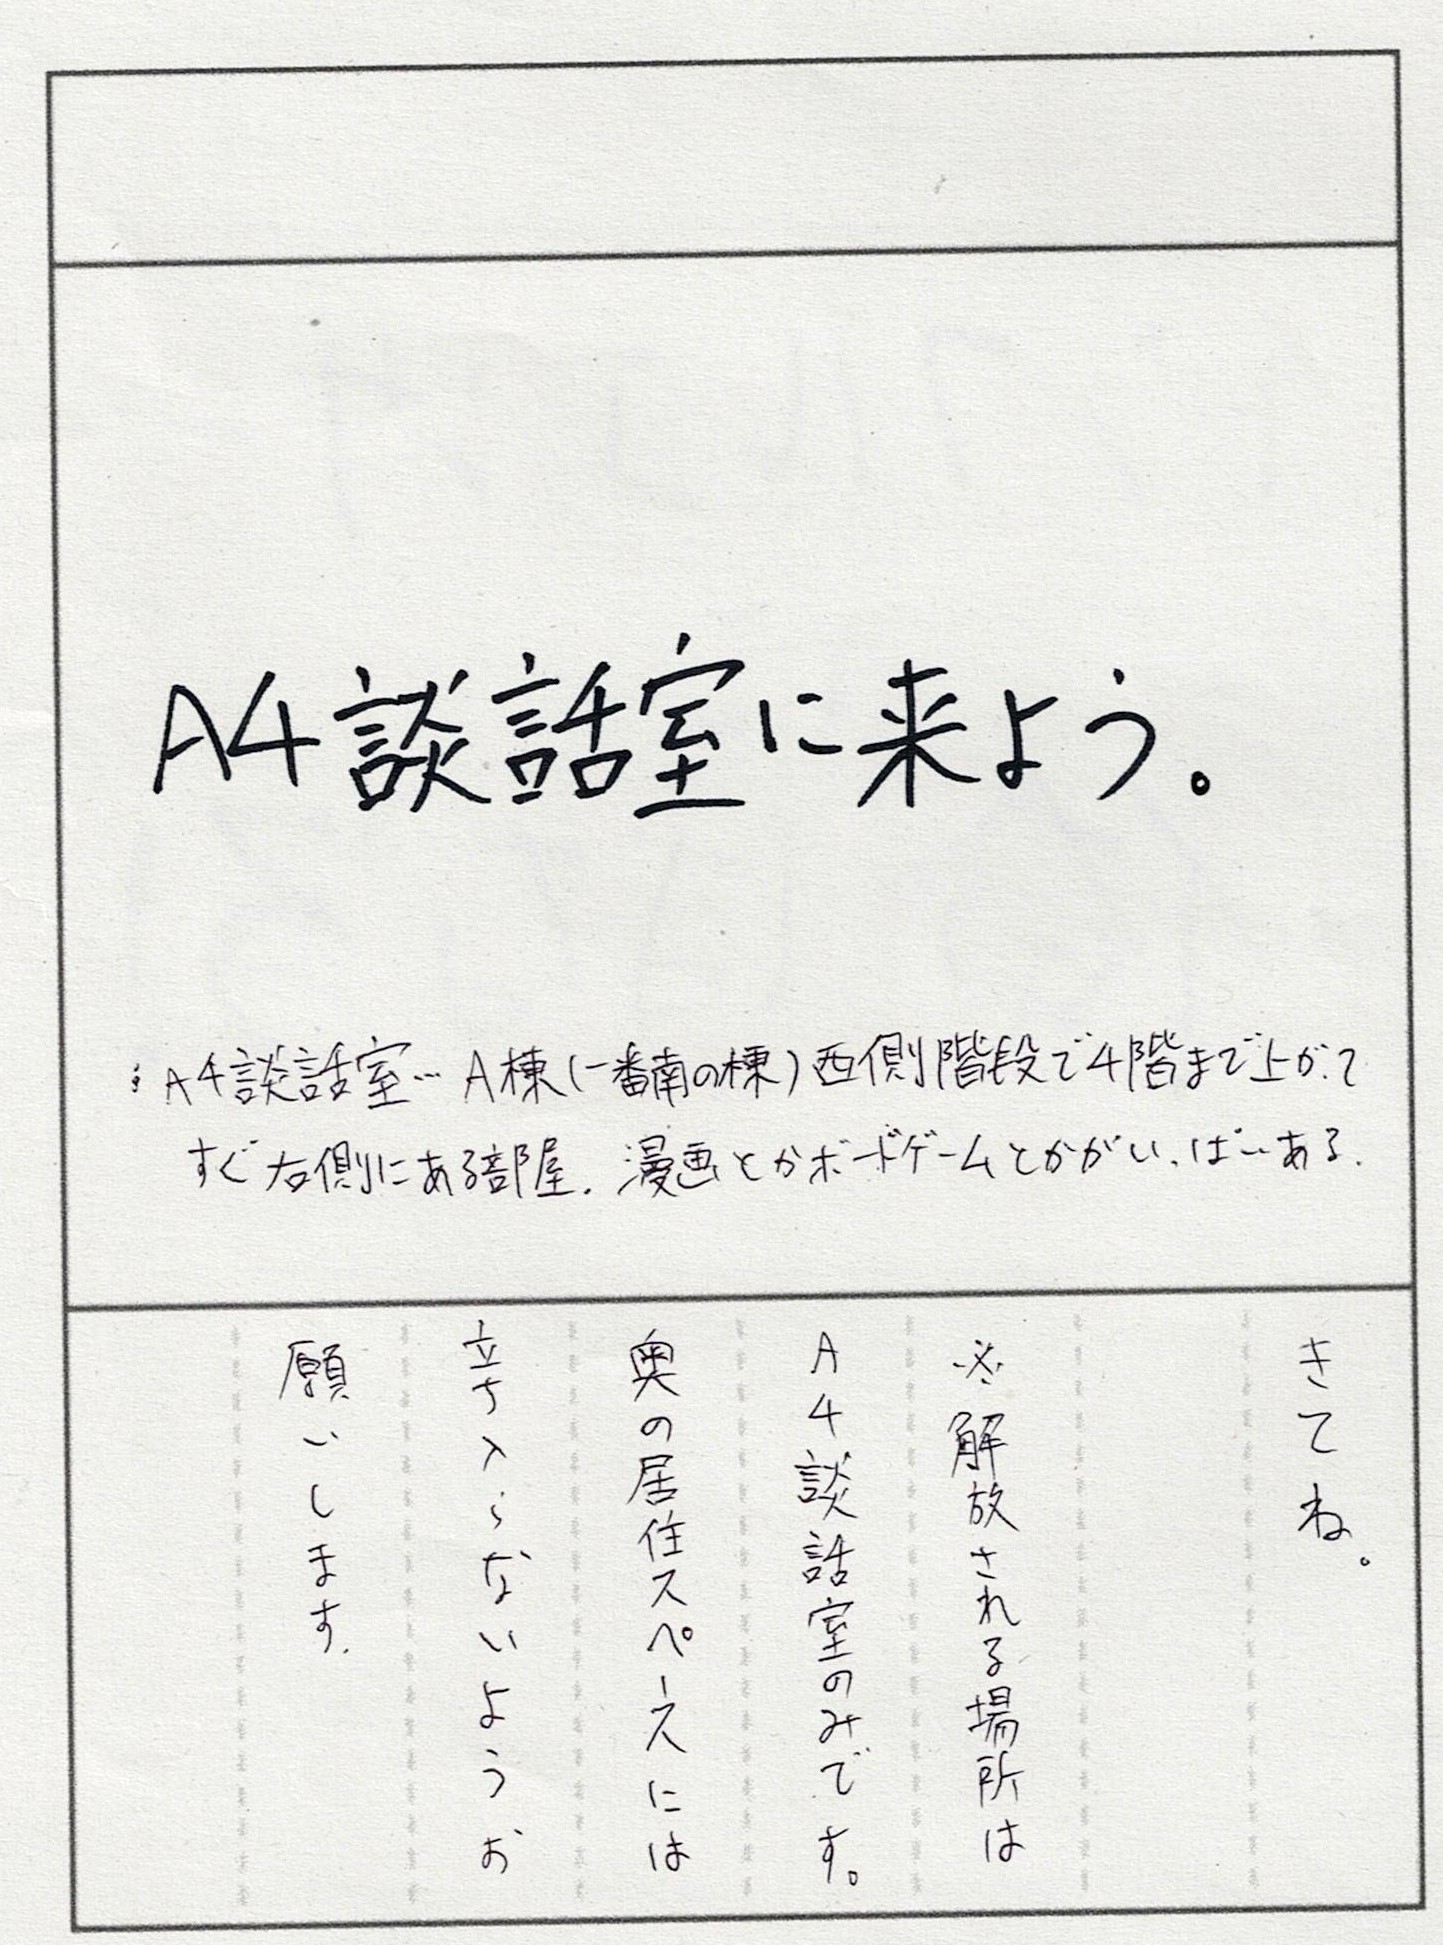 A4談話室に来よう。
※A4談話室… A棟(一番南の棟)西側階段で4階まで上がって
すぐ右側にある部屋。漫画とかボードゲームとかがいっぱいある。
きてね。
※解放される場所は
A4談話室のみです。
奥の居住スペースには
立ち入らないようお
願いします。